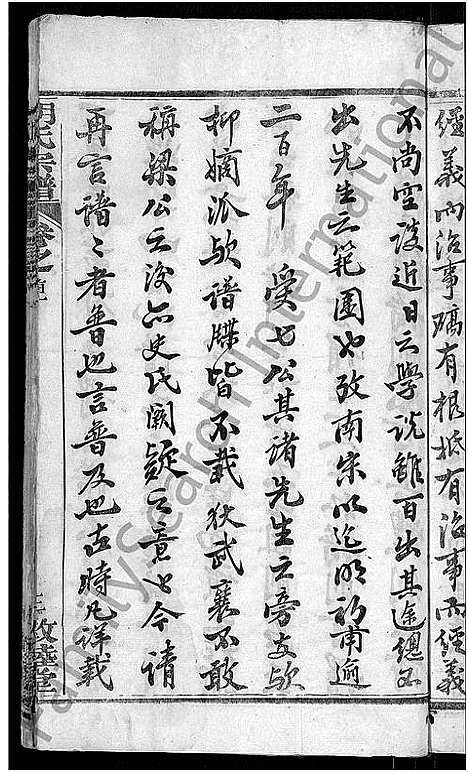 經義內治事確有根柢有治事而經義
不尚空談近日之學說雖百出其途總不
出先生之範圍也攷南宋以迄明初甫逾
二百年 受七公其諸先生之旁支欤
抑嫡派欤譜牒皆不載狄武襄不敢
稱梁公之後亦史氏闕疑之意也今請
再言譜譜者普也言普及也古時凡詳載
胡氏宗譜
卷之首
敦睦堂
FamilySearch International